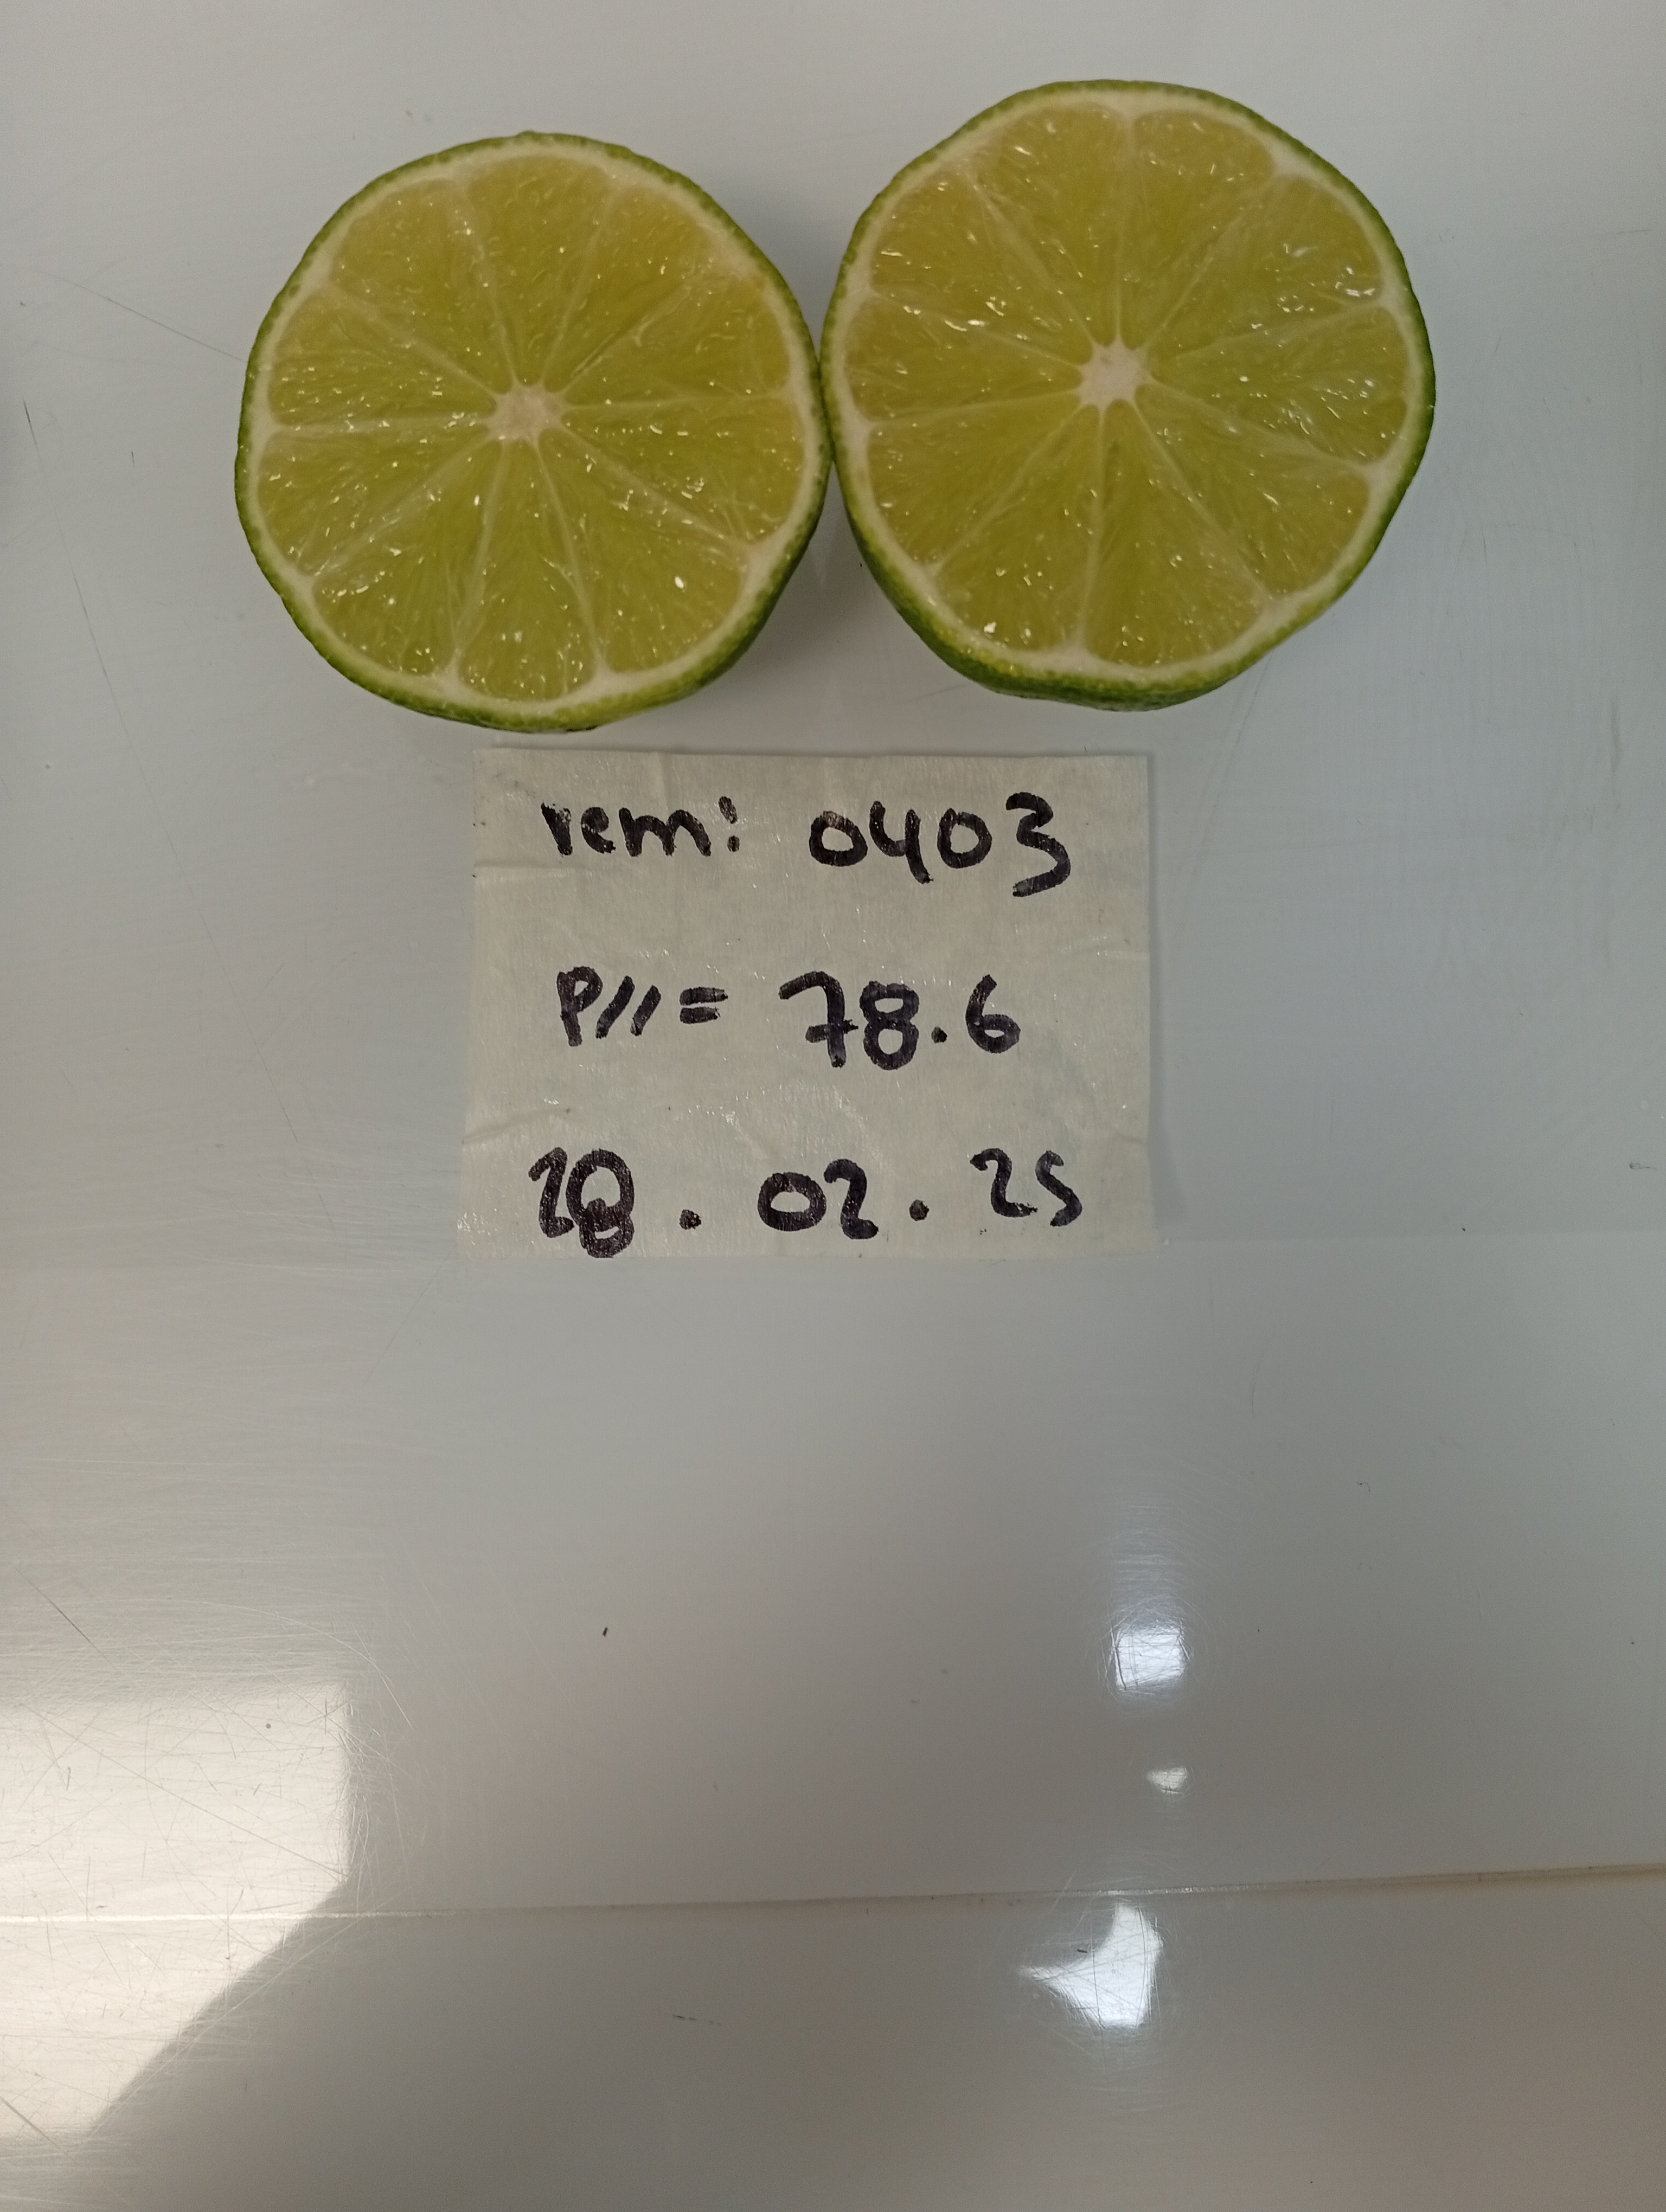 rem: 0403
P//= 78.6
28.02.25